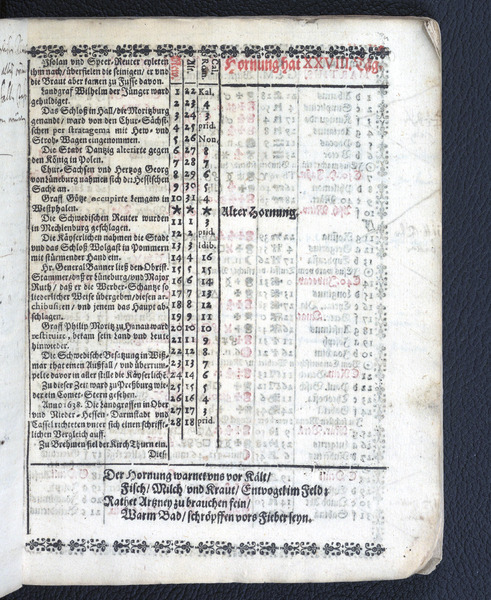 Hornung hat XXVIII. Tag.
Isolan und Speer-Reuter eyleten
ihm nach/ überfielen die seinigen/ er und
die Braut aber kamen zu Fusse davon.
Landgraf Wilhelm der Jünger ward
gehuldiget.
Das Schloß in Hall/ die Moritzburg
genandt/ ward von den Chur-Sächsi-
schen per stratagema mit Hew- und
Stroh-Wagen eingenommen.
Die Stadt Dantzig alterirte gegen
den König in Polen.
Chur-Sachsen und Hertzog Georg
von Lüneburg nahmen sich der Hessischen
Sache an.
Graf Götze occupirte Lemgaw in
Westphalen.
Die Schwedischen Reuter wurden
in Mechlenburg geschlagen.
Die Käyserlichen nahmen die Stadt
und das Schloß Wolgast in Pommern
mit stürmender Hand ein.
Hr. General Banner ließ den Obrist.
Stammer/ und Major
Ruth/ daß er die Werber-Schantze so
liederlicher Weise übergeben/ diesen ar-
chibusiren/ und jenem das Haupt ab-
schlagen.
Graf Philip Moritz zu Hanau ward
restituirt, bekam sein Land und Leute
hinwieder.
Die Schwedische Besatzung in Wiß-
mar that einen Außfall/ und überrum-
pelte davor in aller stille die Käyserliche.
Zu dieser Zeit ward zu Preßburg wie-
der ein Comet-Stern gesehen.
Anno 1638. Die Landgrafen in Ober
und Nieder-Hessen-Darmstadt und
Cassel richteten unter sich einen schrifft-
lichen Vergleich auff.
Zu Brehmen fiel der Kirch Thurn ein.
Dies
New. Alt. Cal. Rom.
1 22 Kal.
2 23 4
3 24 3
4 25 prid.
5 26 Non.
6 27 8
7 28 7
8 29 6
9 30 5
10 31 4
* * * Alter Hornung.
11 1 3
12 2 prid.
13 3 Idib.
14 4 16
15 5 15
16 6 14
17 7 13
18 8 12
19 9 11
20 10 10
21 11 9
22 12 8
23 13 7
24 14 6
25 15 5
26 16 4
27 17 3
28 18 prid.
Der Hornung warnet uns vor Kält/
Fisch/ Milch und Kraut/ Entvogt im Feld:
Rathet Artzney zu brauchen fein/
Warm Bad/ schröpffen vors Fieber seyn.